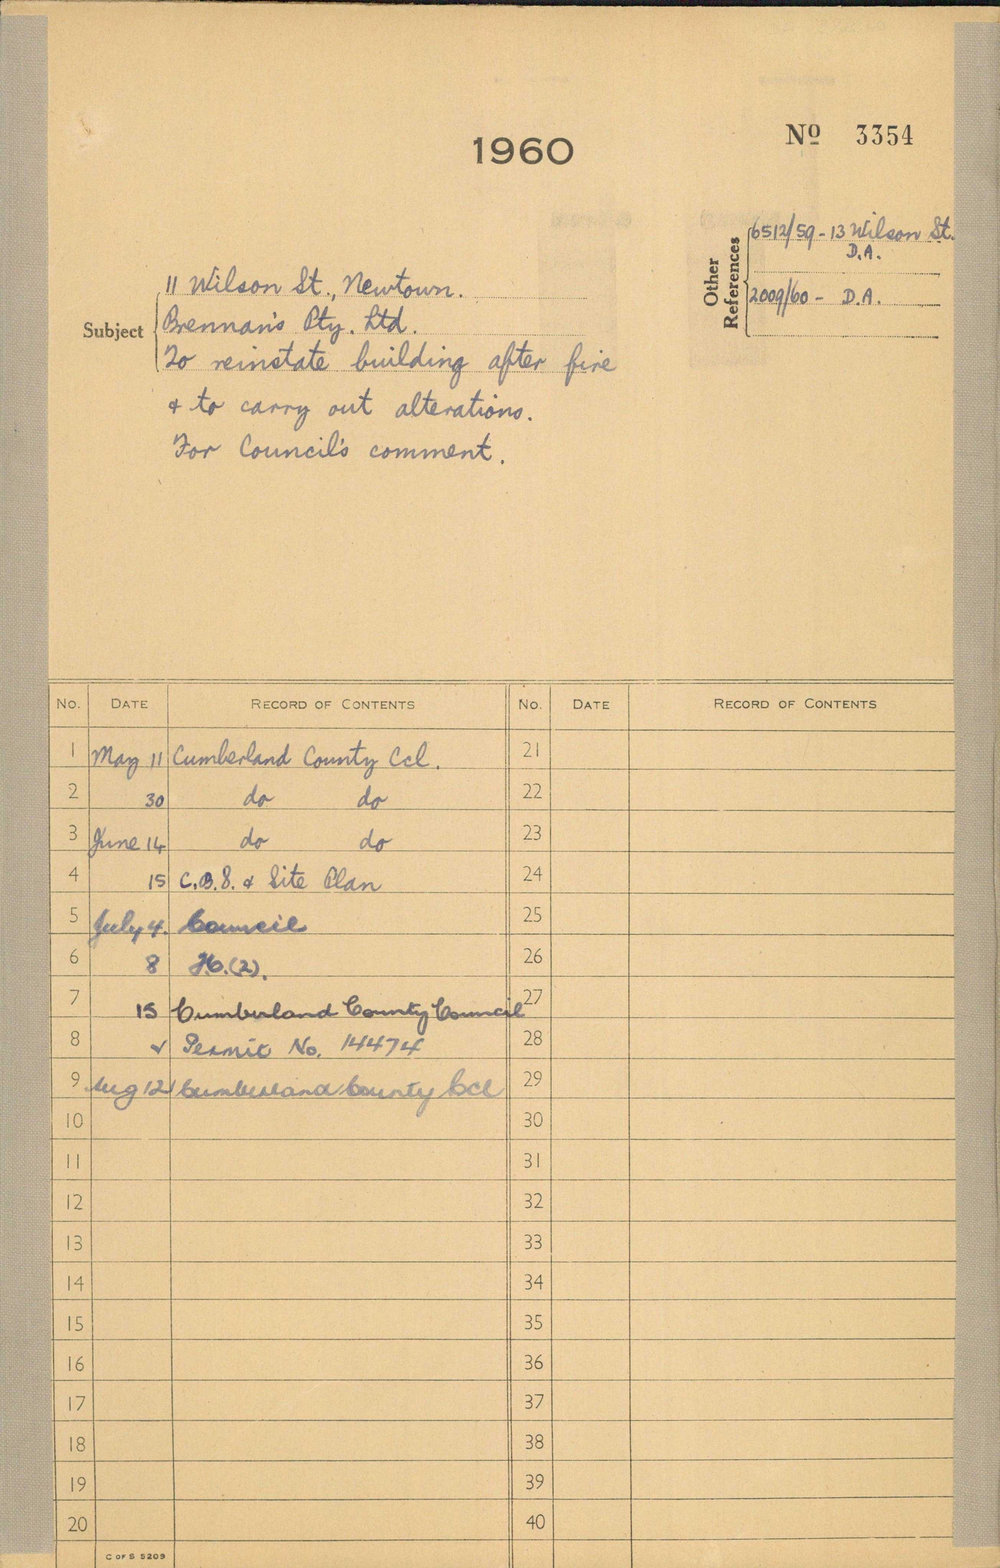 1960
Nº 3354
Other References
6512/59 - 13 Wilson St.
D.A.
2009/60 - D.A.
Subject
11 Wilson St., Newtown.
Brennan's Pty. Ltd.
To reinstate building after fire
& to carry out alterations.
For Council's comment.
No. DATE RECORD OF CONTENTS No. DATE RECORD OF CONTENTS
1 May 11 Cumberland County Ccl. 21
2 30 do do 22
3 June 14 do do 23
4 15 C.B.S. & Site Plan 24
5 July 4. Council 25
6 8 H.(2). 26
7 15 Cumberland County Council 27
8 & Permit No. 14474 28
9 Aug 12 Cumberland County Ccl 29
10 30
11 31
12 32
13 33
14 34
15 35
16 36
17 37
18 38
19 39
20 40
C OF S 5209